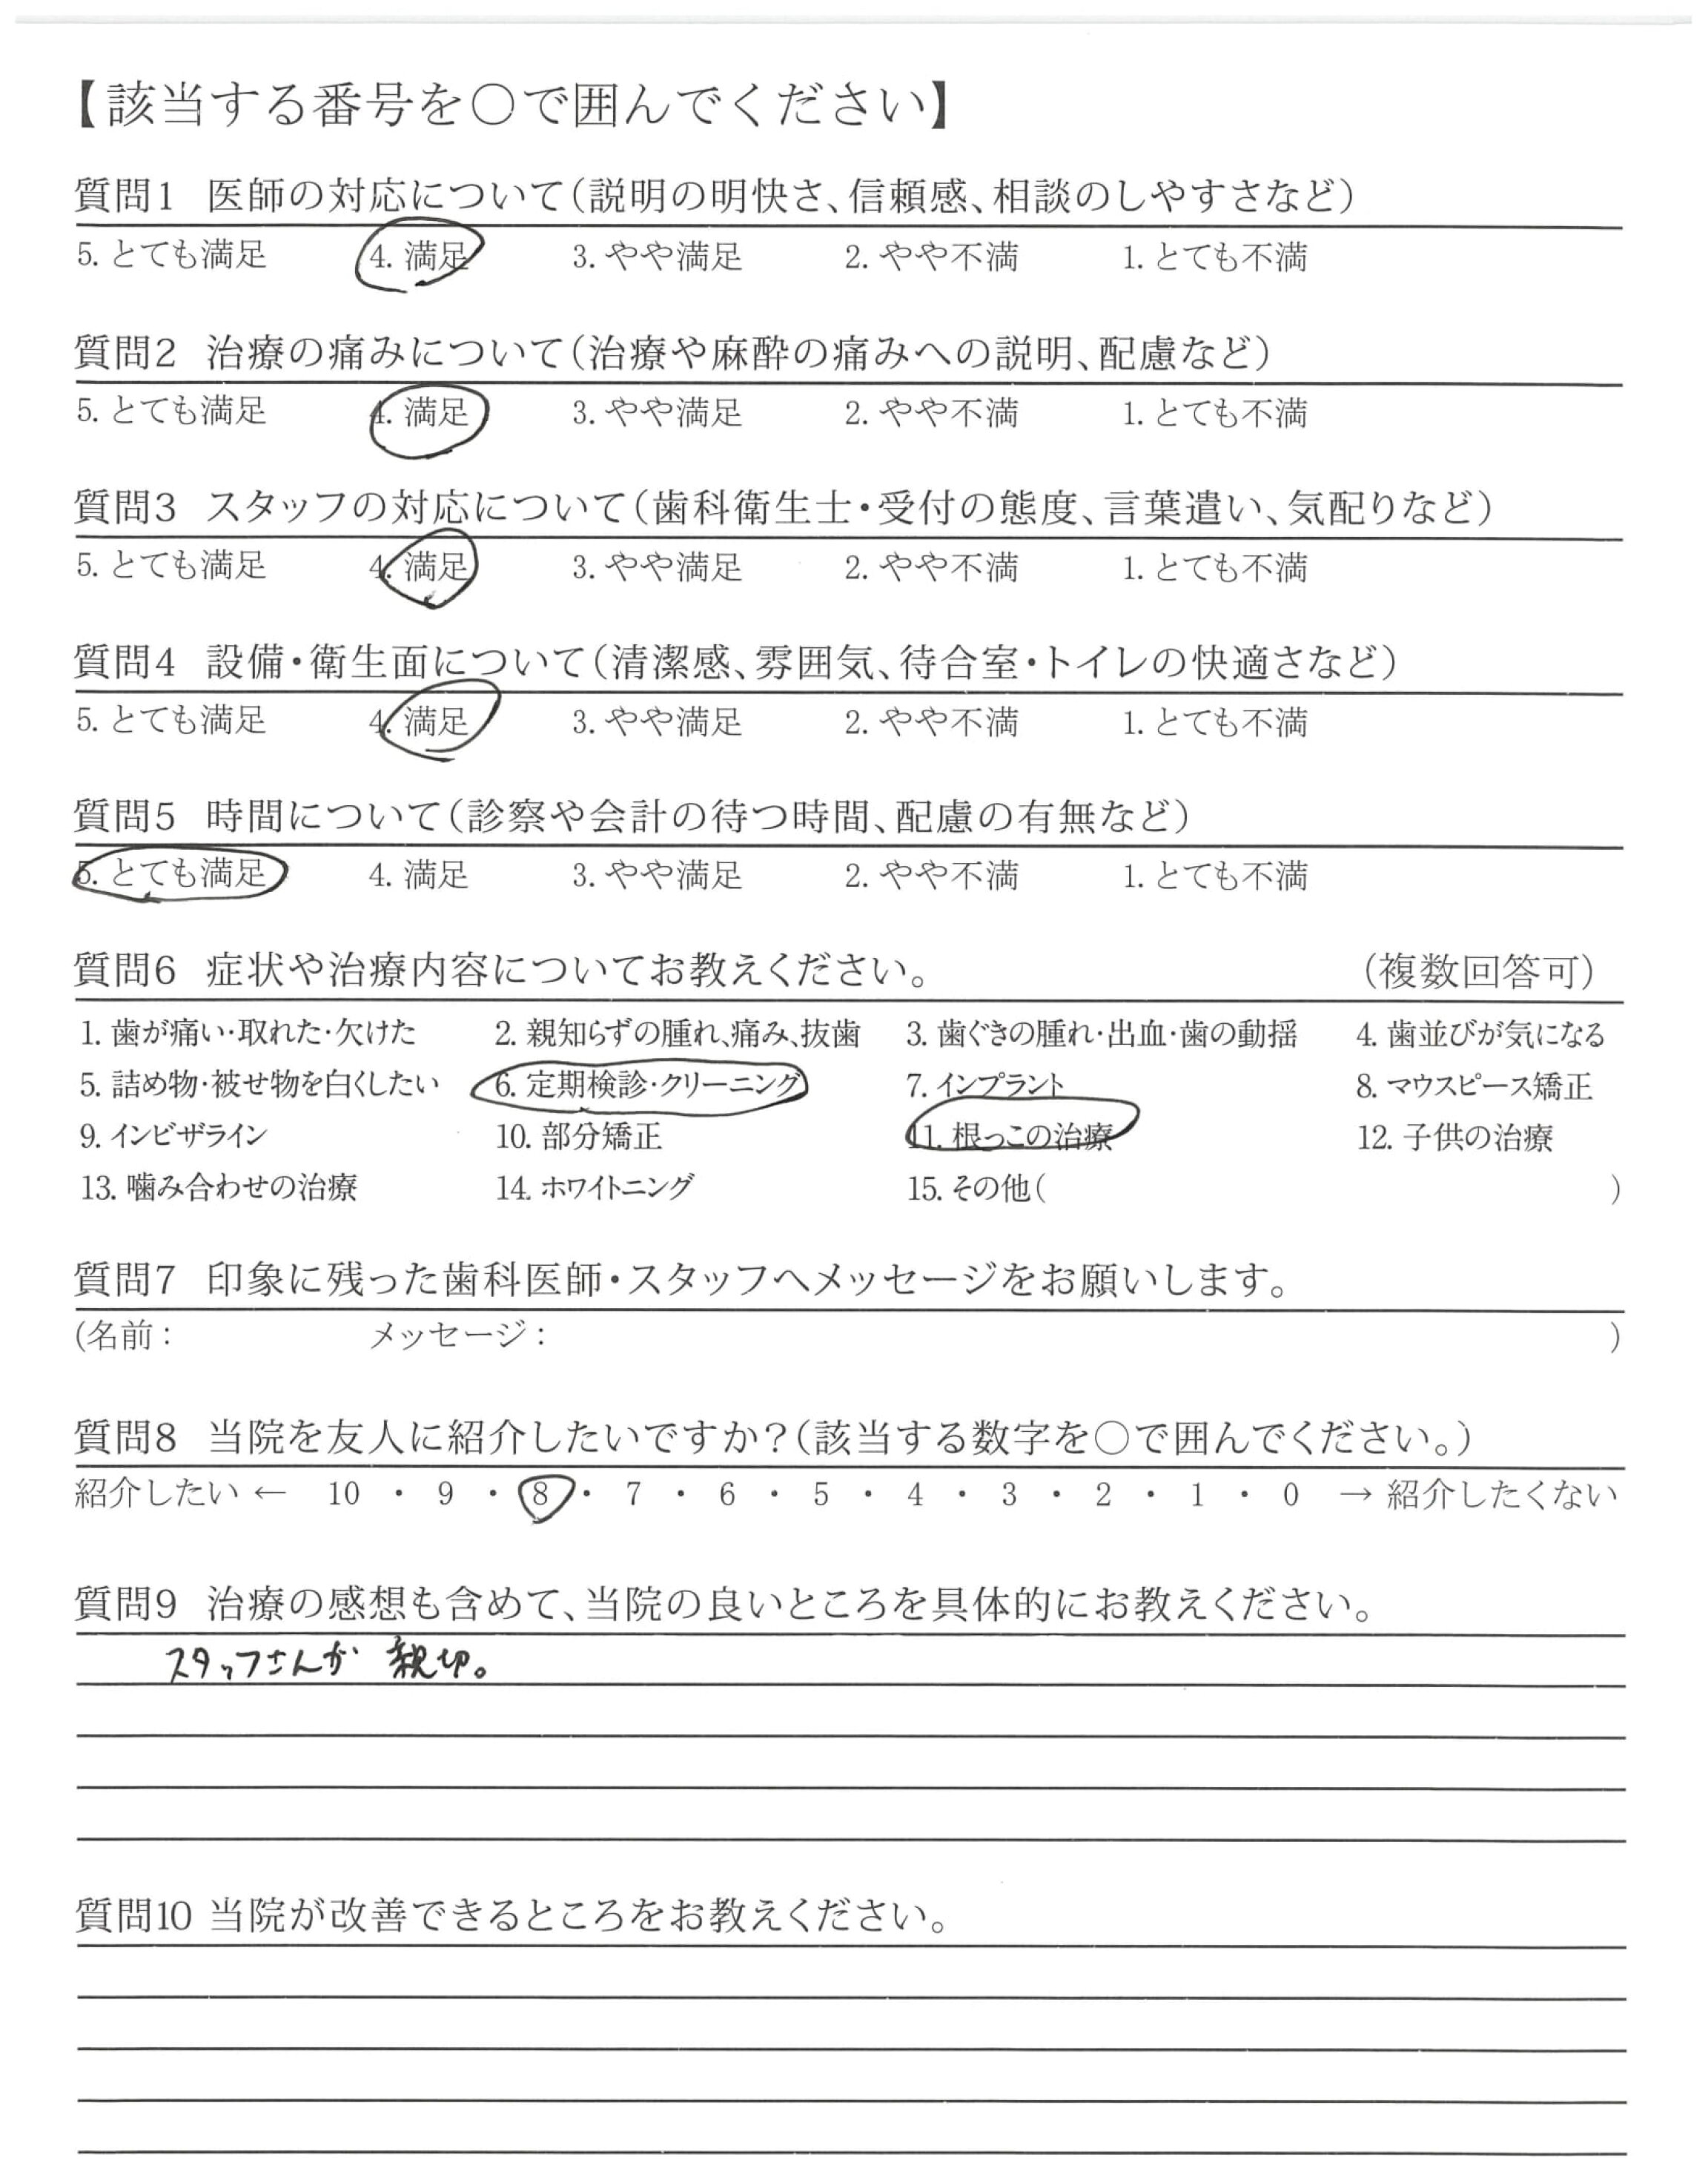 【該当する番号を○で囲んでください】
質問1 医師の対応について(説明の明快さ、信頼感、相談のしやすさなど)
5. とても満足 4. 満足 3. やや満足 2. やや不満 1. とても不満
質問2 治療の痛みについて(治療や麻酔の痛みへの説明、配慮など)
5. とても満足 4. 満足 3. やや満足 2. やや不満 1. とても不満
質問3 スタッフの対応について(歯科衛生士・受付の態度、言葉遣い、気配りなど)
5. とても満足 4. 満足 3. やや満足 2. やや不満 1. とても不満
質問4 設備・衛生面について(清潔感、雰囲気、待合室・トイレの快適さなど)
5. とても満足 4. 満足 3. やや満足 2. やや不満 1. とても不満
質問5 時間について(診察や会計の待つ時間、配慮の有無など)
5. とても満足 4. 満足 3. やや満足 2. やや不満 1. とても不満
質問6 症状や治療内容についてお教えください。 (複数回答可)
1. 歯が痛い・取れた・欠けた 2. 親知らずの腫れ、痛み、抜歯 3. 歯ぐきの腫れ・出血・歯の動揺 4. 歯並びが気になる
5. 詰め物・被せ物を白くしたい 6. 定期検診・クリーニング 7. インプラント 8. マウスピース矯正
9. インビザライン 10. 部分矯正 11. 根っこの治療 12. 子供の治療
13. 噛み合わせの治療 14. ホワイトニング 15. その他( )
質問7 印象に残った歯科医師・スタッフへメッセージをお願いします。
(名前: メッセージ: )
質問8 当院を友人に紹介したいですか?(該当する数字を○で囲んでください。)
紹介したい ← 10 ・ 9 ・ 8 ・ 7 ・ 6 ・ 5 ・ 4 ・ 3 ・ 2 ・ 1 ・ 0 → 紹介したくない
質問9 治療の感想も含めて、当院の良いところを具体的にお教えください。
スタッフさんが 親切。
質問10 当院が改善できるところをお教えください。